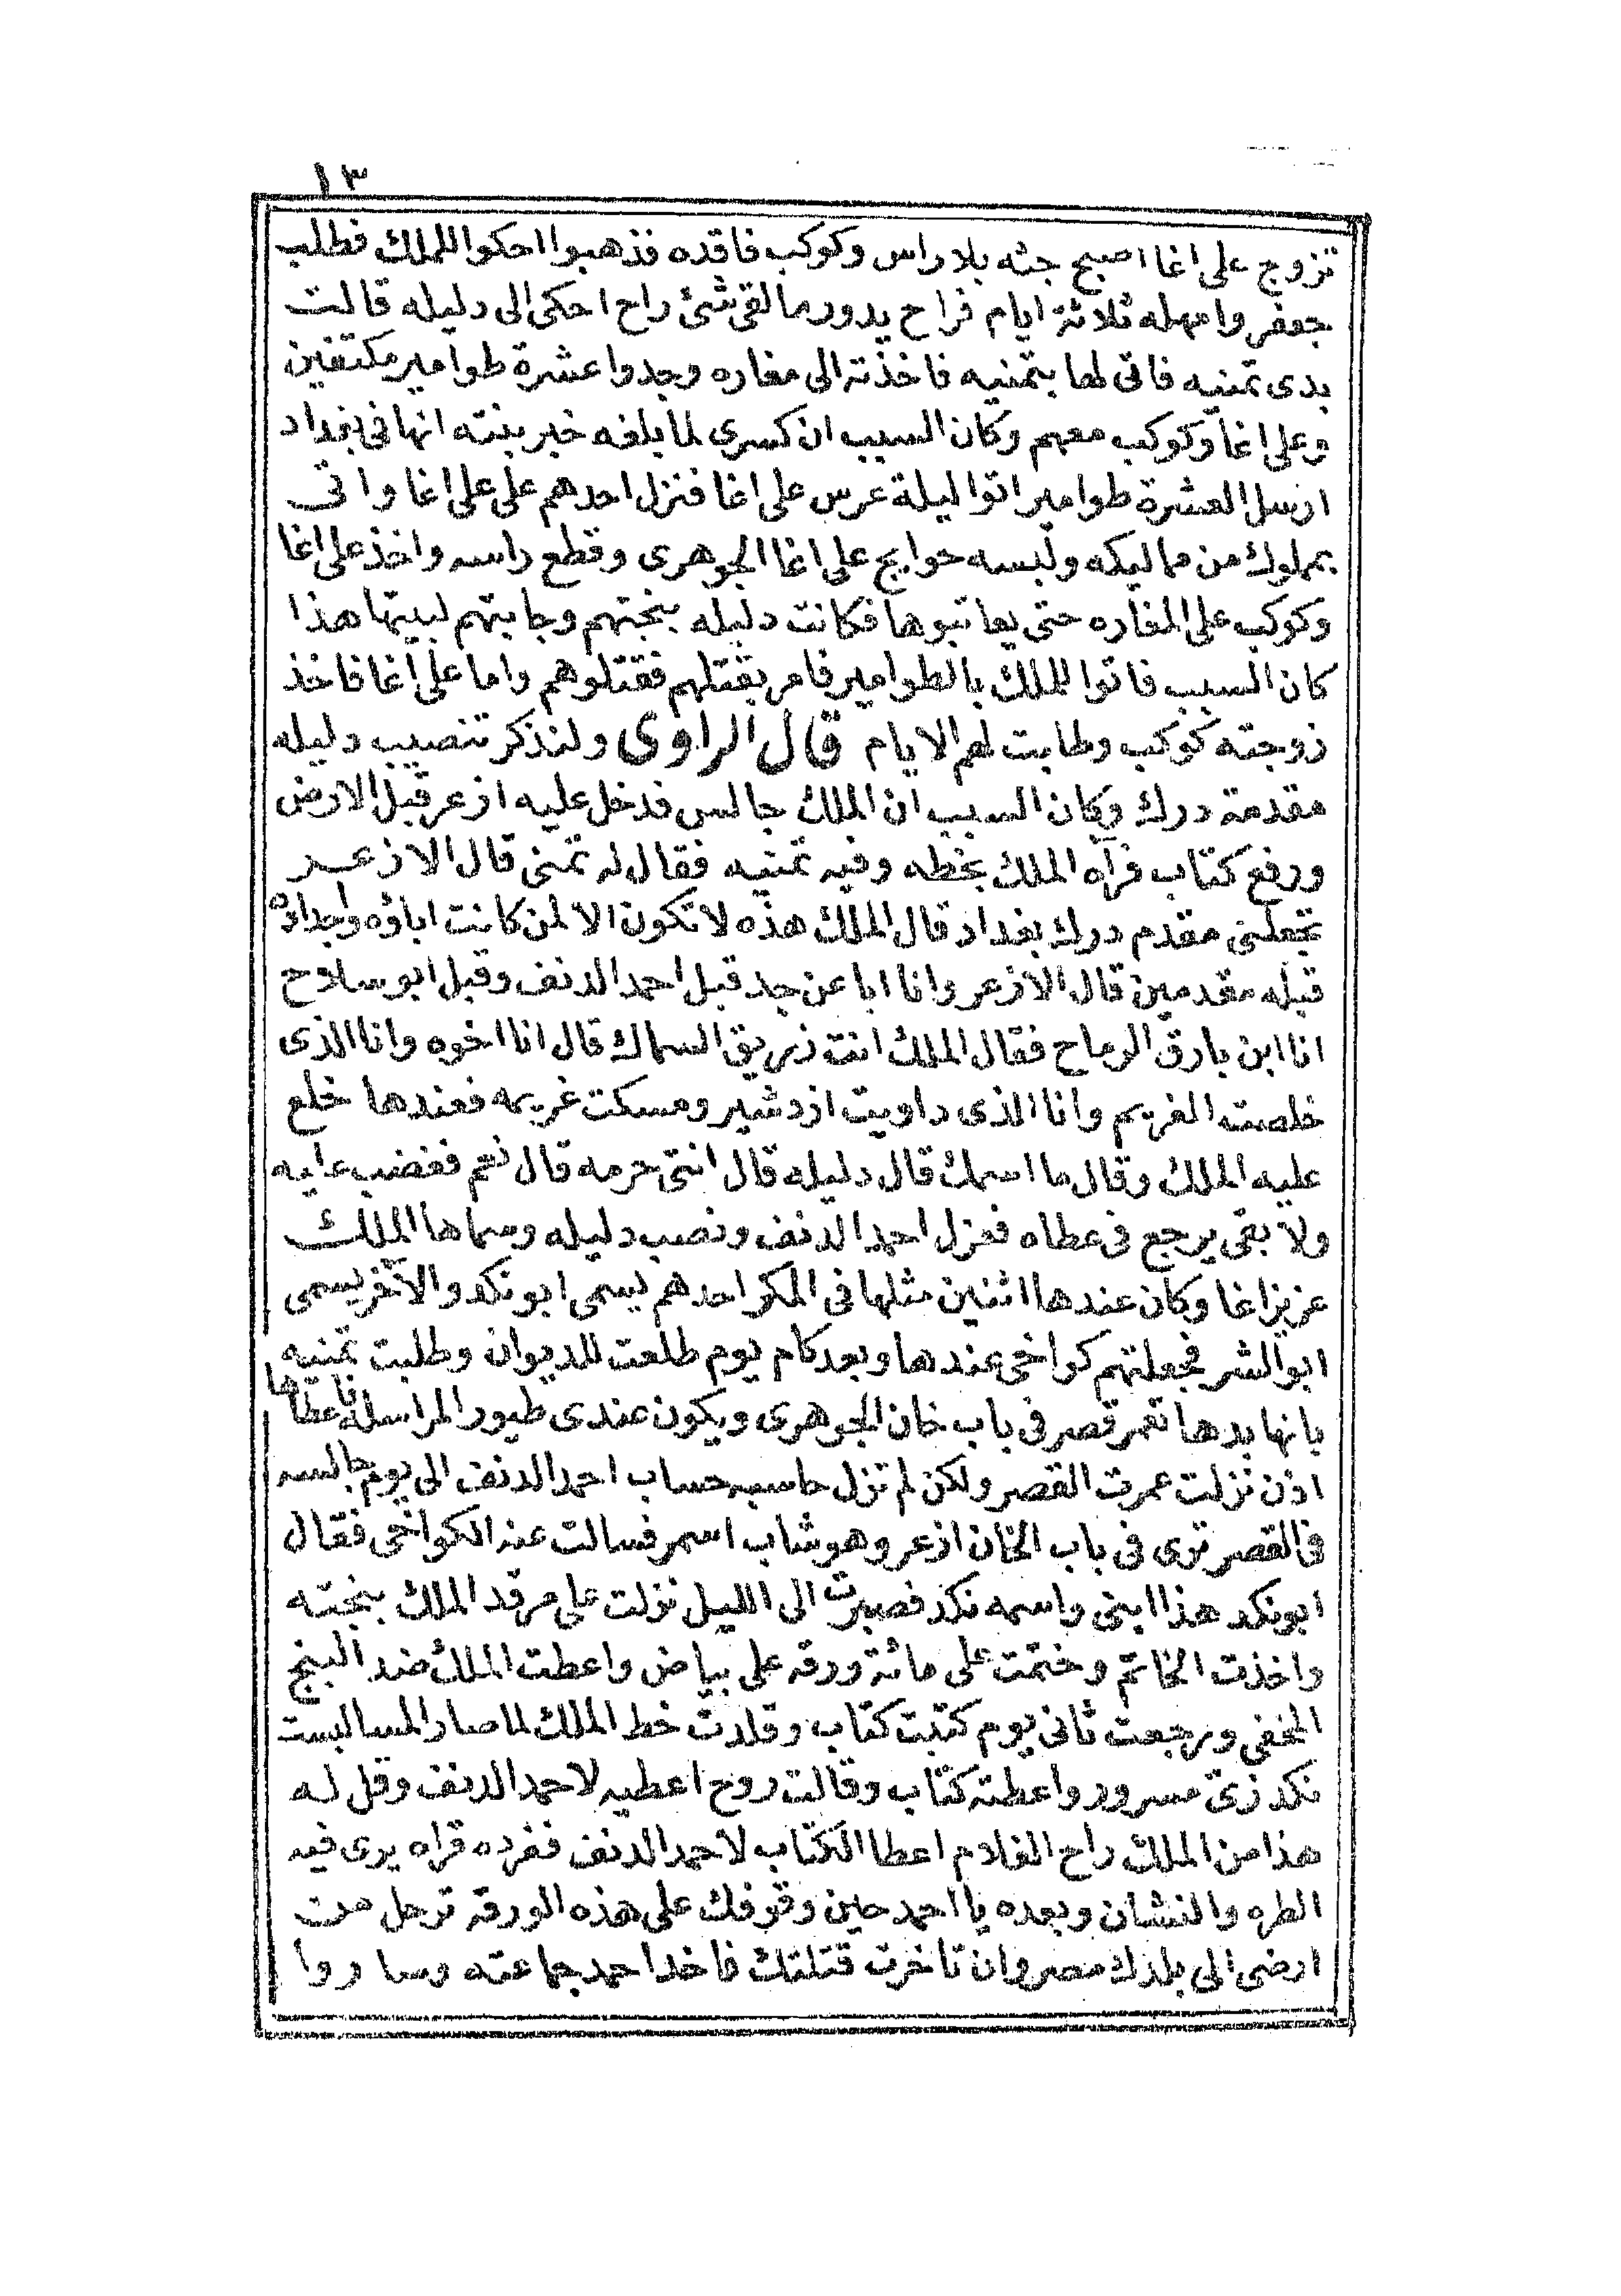 ١٣
تزوج على اغا اصبح جثه بلا راس وكوكب فاقده فذهبوا احكوا للملك فطلب
جعفر وامهله ثلاثة ايام فراح يدور ما لقى شئ راح احكى الى دليله قالت
بدى تمنيه فاتى لها بتمنيه فاخذته الى مغاره وجدوا عشرة طوامير مكتفين
وعلى اغا وكوكب معهم وكان السبب ان كسرى لما بلغه خبر بنته انها فى بغداد
ارسل العشرة طوامير اتوا ليلة عرس على اغا فنزل احدهم على على اغا واتى
بمملوك من مماليكه ولبسه حوايج على اغا الجوهرى وقطع راسه واخذ على اغا
وكوكب على المغاره حتى يعاتبوها فكانت دليله بنجتهم وجابتهم لبيتها هذا
كان السبب فاتوا للملك بالطوامير فامر بقتلهم فقتلوهم واما على اغا فاخذ
زوجته كوكب وطابت لهم الايام قال الراوى ولنذكر تنصيب دليله
مقدمة درك وكان السبب ان الملك جالس فدخل عليه ازعر قبل الارض
ورفع كتاب قرآه الملك بخطه وفيه تمنيه فقال له تمنى قال الازعر
تجعلنى مقدم درك بغداد قال الملك هذه لا تكون الا لمن كانت اباؤه واجداؤه
قبله مقدمين قال الازعر وانا ابا عن جد قبل احمد الدنف وقبل ابو سلاح
انا ابن بارق الرماح فقال الملك انت زريق السماك قال انا اخوه وانا الذى
خلصت الغريم وانا الذى داويت ازدشير ومسكت غريمه فعندها خلع
عليه الملك وقال ما اسمك قال دليله قال انتى حرمه قال نعم فغضب عليه
ولا بقى يرجع فى عطاه فعزل احمد الدنف ونصب دليله وسماها الملك
عزيز اغا وكان عندها اثنين مثلها فى المكر احدهم يسمى ابو نكد والآخر يسمى
ابو الشر فجعلتهم كواخى عندها وبعد كام يوم طلعت للديوان وطلبت تمنيه
بانها بدها تعمر قصر فى باب خان الجوهرى ويكون عندى طيور المراسله فاعطاها
اذن نزلت عمرت القصر ولكن لم تزل حاسبه حساب احمد الدنف الى يوم جالسه
فى القصر ترى فى باب الخان ازعر وهو شاب اسمر فسالت عنه الكواخى فقال
ابو نكد هذا ابنى واسمه نكد فصبرت الى الليل نزلت على مرقد الملك بنجته
واخذت الخاتم وختمت على مائة ورقه على بياض واعطت الملك ضد البنج
الخفى ورجعت ثانى يوم كتبت كتاب وقلدت خط الملك لما صار المسا لبست
نكد زى مسرور واعطته كتاب وقالت روح اعطيه لاحمد الدنف وقل له
هذا من الملك راح الغلام اعطا الكتاب لاحمد الدنف ففرده قراه يرى فيه
الطره والنشان وبعده يا احمد حين وقوفك على هذه الورقه ترحل من
ارضى الى بلدك مصر وان تاخرت قتلتك فاخذ احمد جماعته وساروا